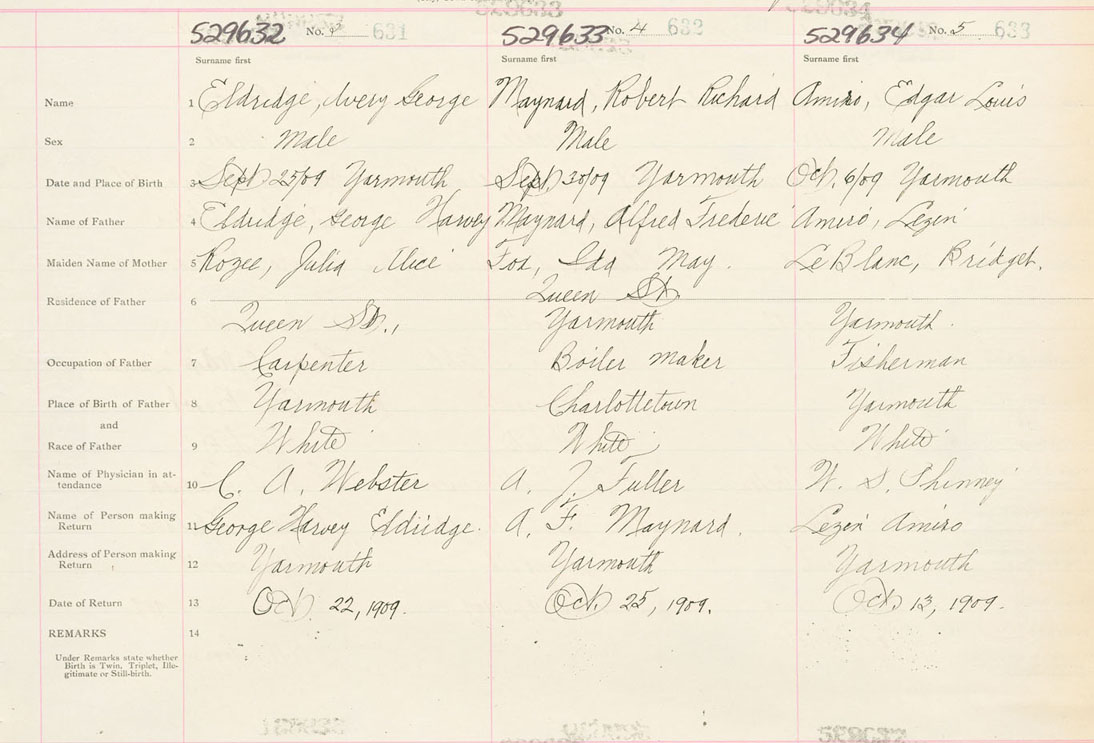 529633 529634
529632 No. 3 631 529633 No. 4 632 529634 No. 5 633
Surname first Surname first Surname first
Name 1 Eldridge, Avery George Maynard, Robert Richard Amiro, Edgar Louis
Sex 2 Male Male Male
Date and Place of Birth 3 Sept 25/09 Yarmouth Sept. 30/09 Yarmouth Oct. 6/09 Yarmouth
Name of Father 4 Eldridge, George Harvey Maynard, Alfred Frederic Amiro, Lezin
Maiden Name of Mother 5 Rozee, Julia Alice Fox, Ida May. Le Blanc, Bridget.
Residence of Father 6 Queen St.
Queen St., Yarmouth Yarmouth.
Occupation of Father 7 Carpenter Boiler maker Fisherman
Place of Birth of Father 8 Yarmouth Charlottetown Yarmouth
and
Race of Father 9 White White White
Name of Physician in at-
tendance 10 C. A. Webster A. J. Fuller W. S. Phinney
Name of Person making
Return 11 George Harvey Eldridge. A. F. Maynard. Lezin Amiro
Address of Person making
Return 12 Yarmouth Yarmouth Yarmouth
Date of Return 13 Oct. 22, 1909. Oct. 25, 1909. Oct. 13, 1909.
REMARKS 14
Under Remarks state whether
Birth is Twin, Triplet, Ille-
gitimate or Still-birth.